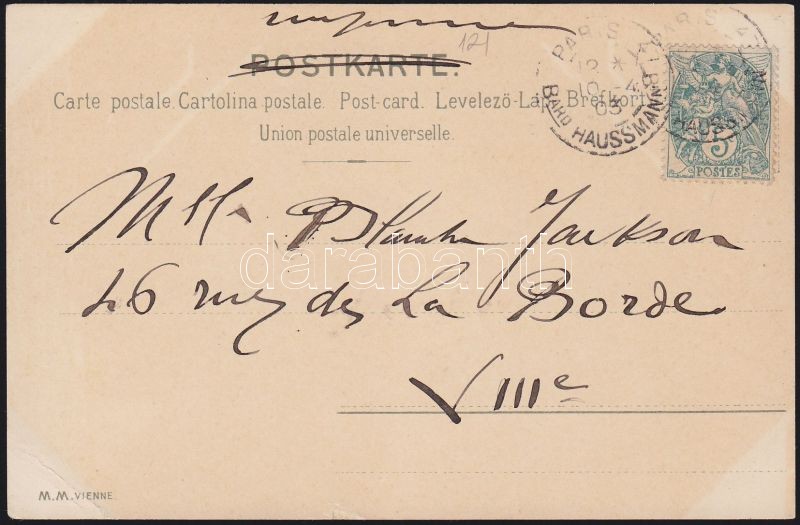 121
POSTKARTE.
Carte postale. Cartolina postale. Post-card. Levelező-Lap. Brefkort.
Union postale universelle.
PARIS
12 *
10 - 4
03
BARD HAUSSMANN
PARIS
HAUSSM
5
POSTES
Mlle Blanche Jackson
darabanth
46 rue de La Borde
VIIIe
M.M. VIENNE.